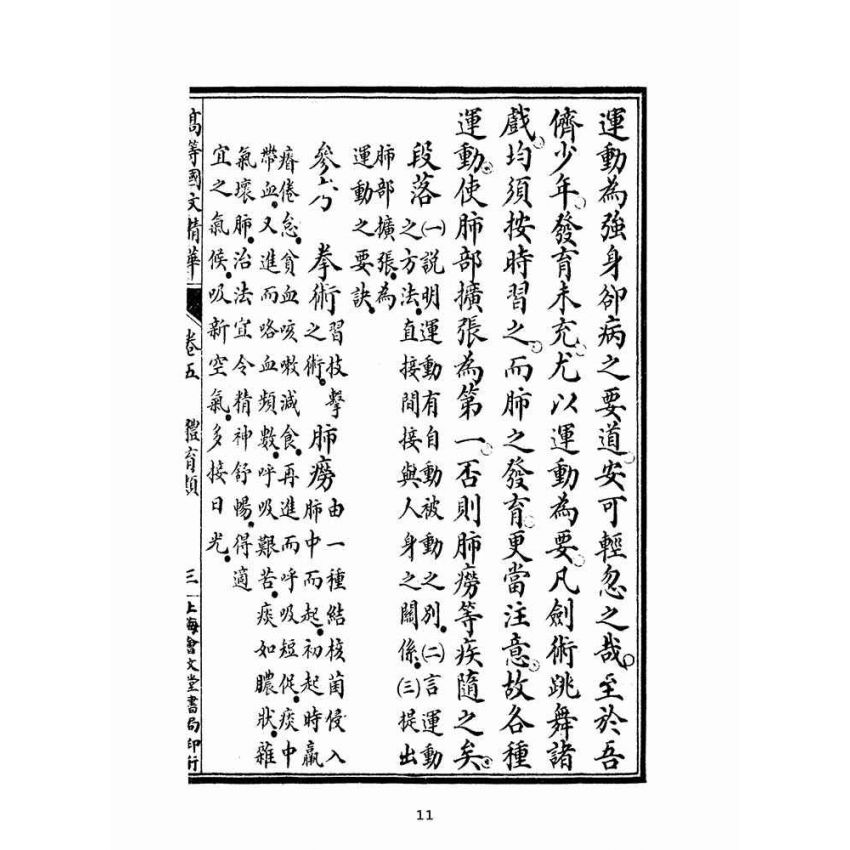 運動為強身卻病之要道。安可輕忽之哉。至於吾
儕少年。發育未充。尤以運動為要。凡劍術跳舞諸
戲。均須按時習之。而肺之發育。更當注意。故各種
運動。使肺部擴張為第一。否則肺癆等疾隨之矣。
段落 ㈠說明運動有自動被動之別。㈡言運動
之方法。直接間接與人身之關係。㈢提出
肺部擴張。為
運動之要訣。
參考 拳術 習技擊之術。 肺癆 由一種結核菌侵入
肺中而起。初起時羸
瘠倦怠。貧血咳嗽減食。再進而呼吸短促。痰中
帶血。又進而咯血頻數。呼吸艱苦。痰如膿狀。雜
氣壞肺。治法宜令精神舒暢。得適
宜之氣候。吸新空氣。多接日光。
高等國文精華 卷五 體育類 三 上海會文堂書局印行
11